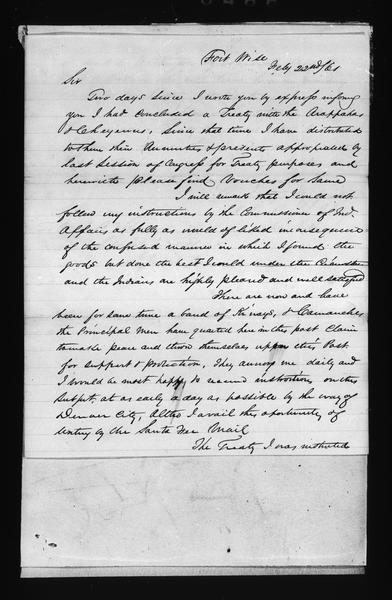 Fort Wise
Feby 22nd/61
Sir
Two days since I wrote you by express infomg
you I had concluded a Treaty with the Arappahas
& Cheyennes, Since that time I have distributed
to them their Annuities & presents appropriated by
last session of Congress for Treaty purposes and
herewith please find Vouchers for Same
I will remark that I could not
follow my instructions by the Commissioner of Ind.
Affairs as fully as could of liked in consequence
of the confused manner in which I found the
goods but done the best I could under the
and the Indians are highly pleased and well satisfied
There are now and have
been for some time a band of Kiways, & Camanches,
the Principal Men have quarted here in this post Claim
to make peace and throw themselves upon this Post
for support & protection, They annoy me daily and
I would be most happy to receive instructions, on this
subject, at as early a day as possible by the way of
Denver City, Altho I avail this oportunity of
writing by the Santa Fee Mail
The Treaty I was instructed